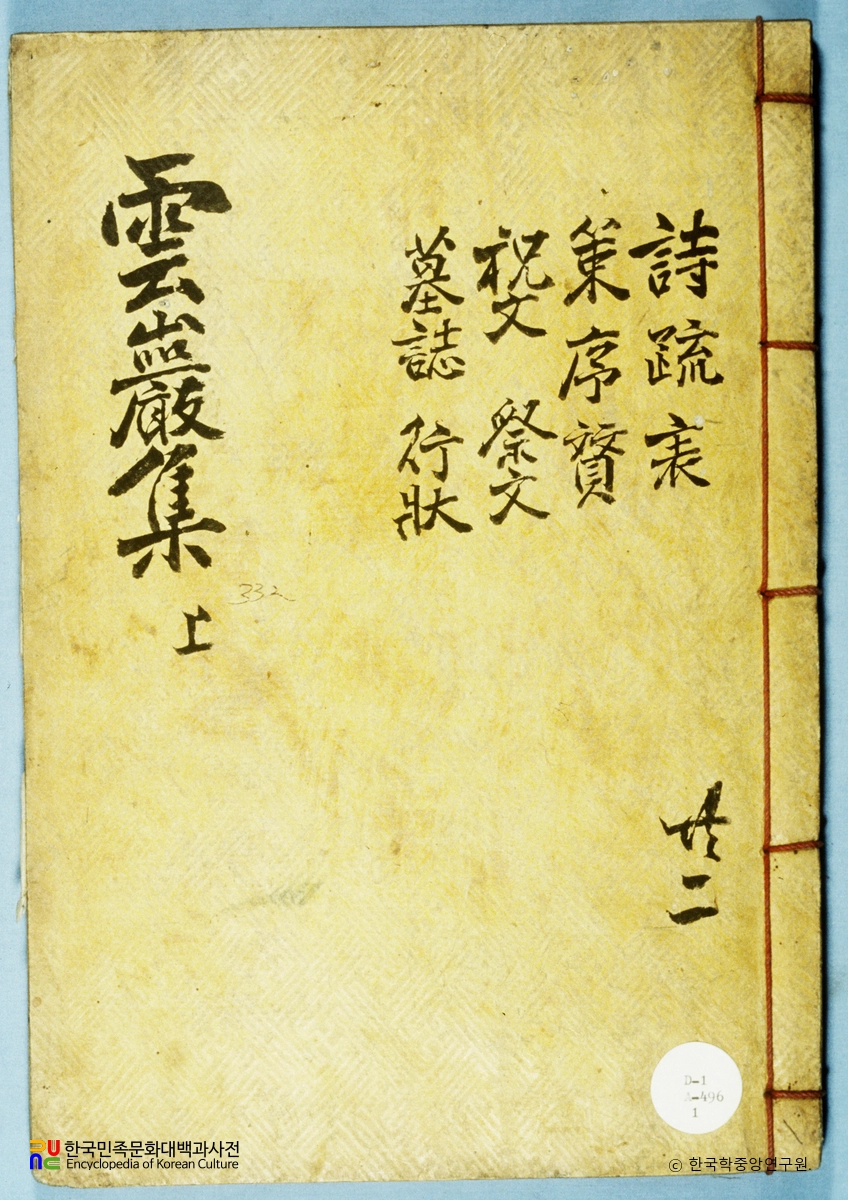 詩 疏 表
策 序 贊
祝文 祭文
墓誌 行狀
雲巖集 上
共二
D-1
A-496
1
한국민족문화대백과사전
Encyclopedia of Korean Culture
© 한국학중앙연구원